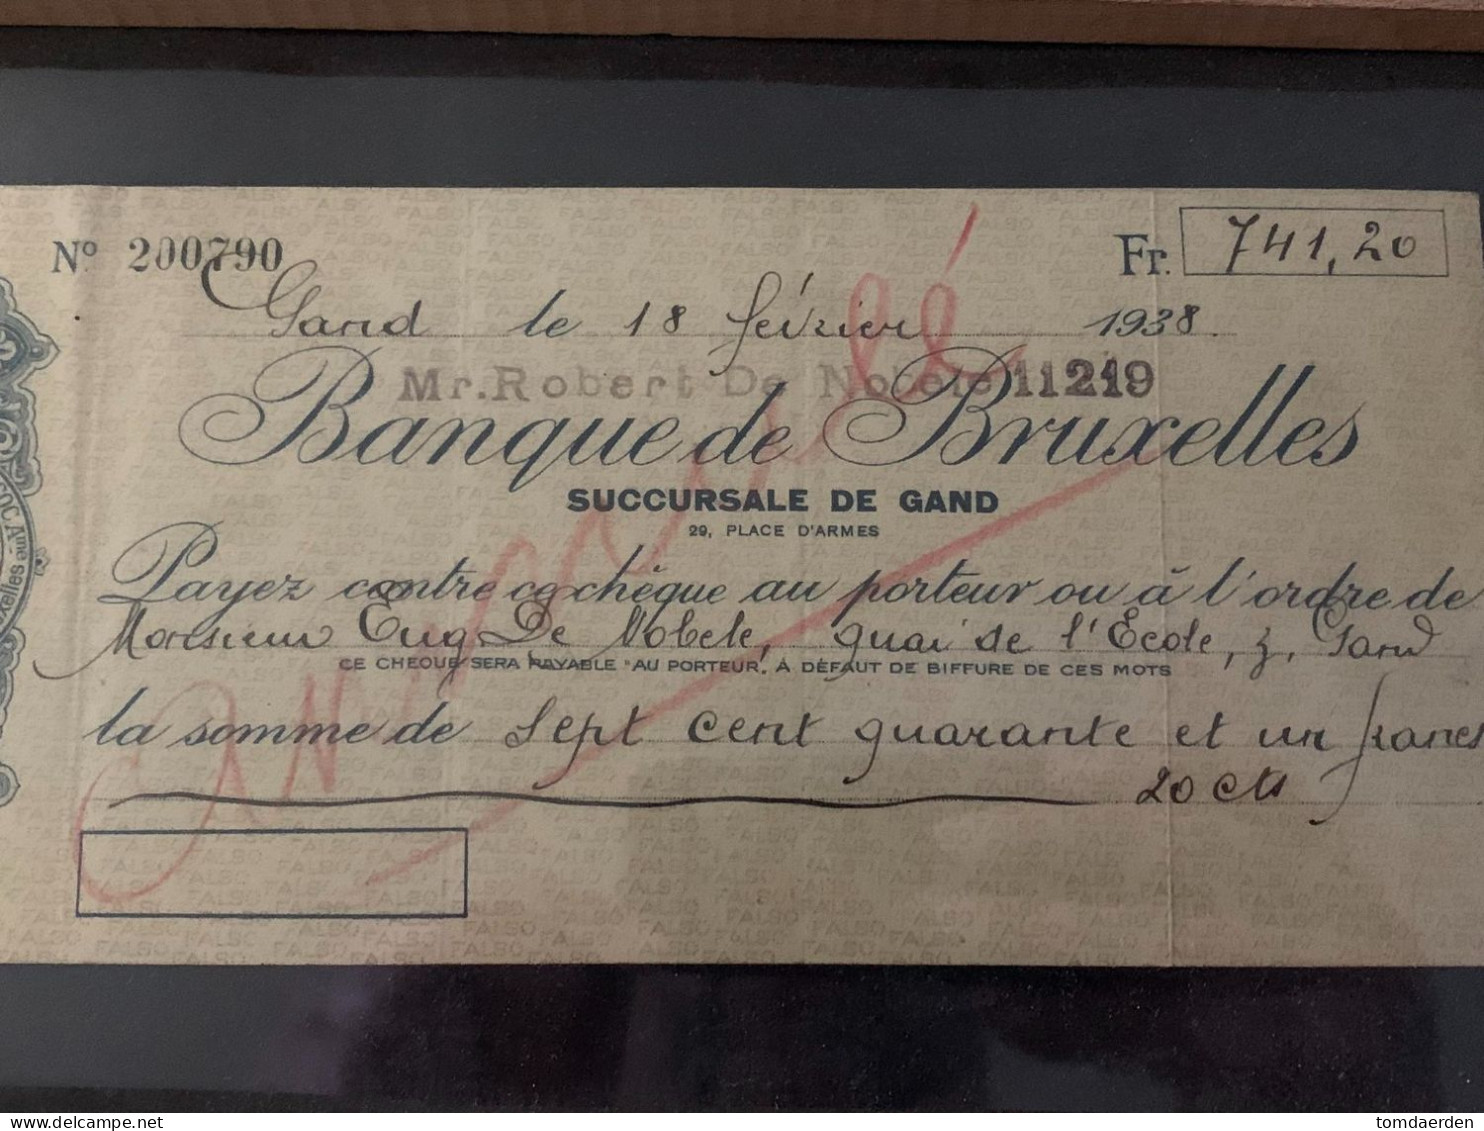 Nº 200790
Fr. 741,20
Gand le 18 février 1938.
Mr. Robert De Nobele 11219
Banque de Bruxelles
SUCCURSALE DE GAND
29, PLACE D'ARMES
Payez contre ce chèque au porteur ou à l'ordre de
Monsieur Eug De Nobele, quai de l'Ecole, 3, Gand
CE CHEQUE SERA PAYABLE "AU PORTEUR", A DÉFAUT DE BIFFURE DE CES MOTS
la somme de Sept cent quarante et un francs
20 cts
Annulé
delcampe.net
tomdaerden